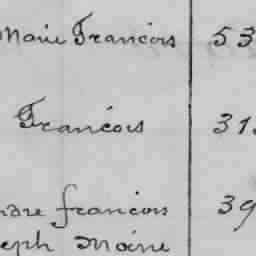 Marie François 53
François 31
françois 39
eph Marie